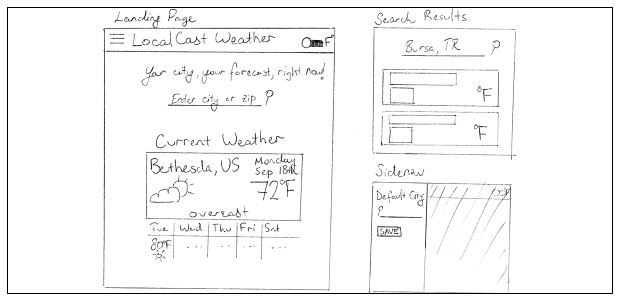 Landing Page
LocalCast Weather °F
Your city, your forecast, right now!
Enter city or zip
Current Weather
Bethesda, US
Monday
Sep 18th
72°F
overcast
Tue Wed Thu Fri Sat
80°F ... ... ... ...
Search Results
Bursa, TR
°F
°F
Sidenav
Default City
SAVE